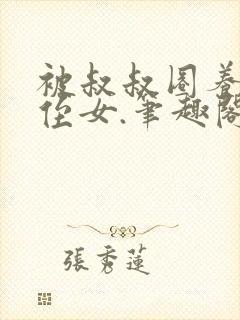 被叔叔圈养
侄女.笔趣阁
張秀蓮